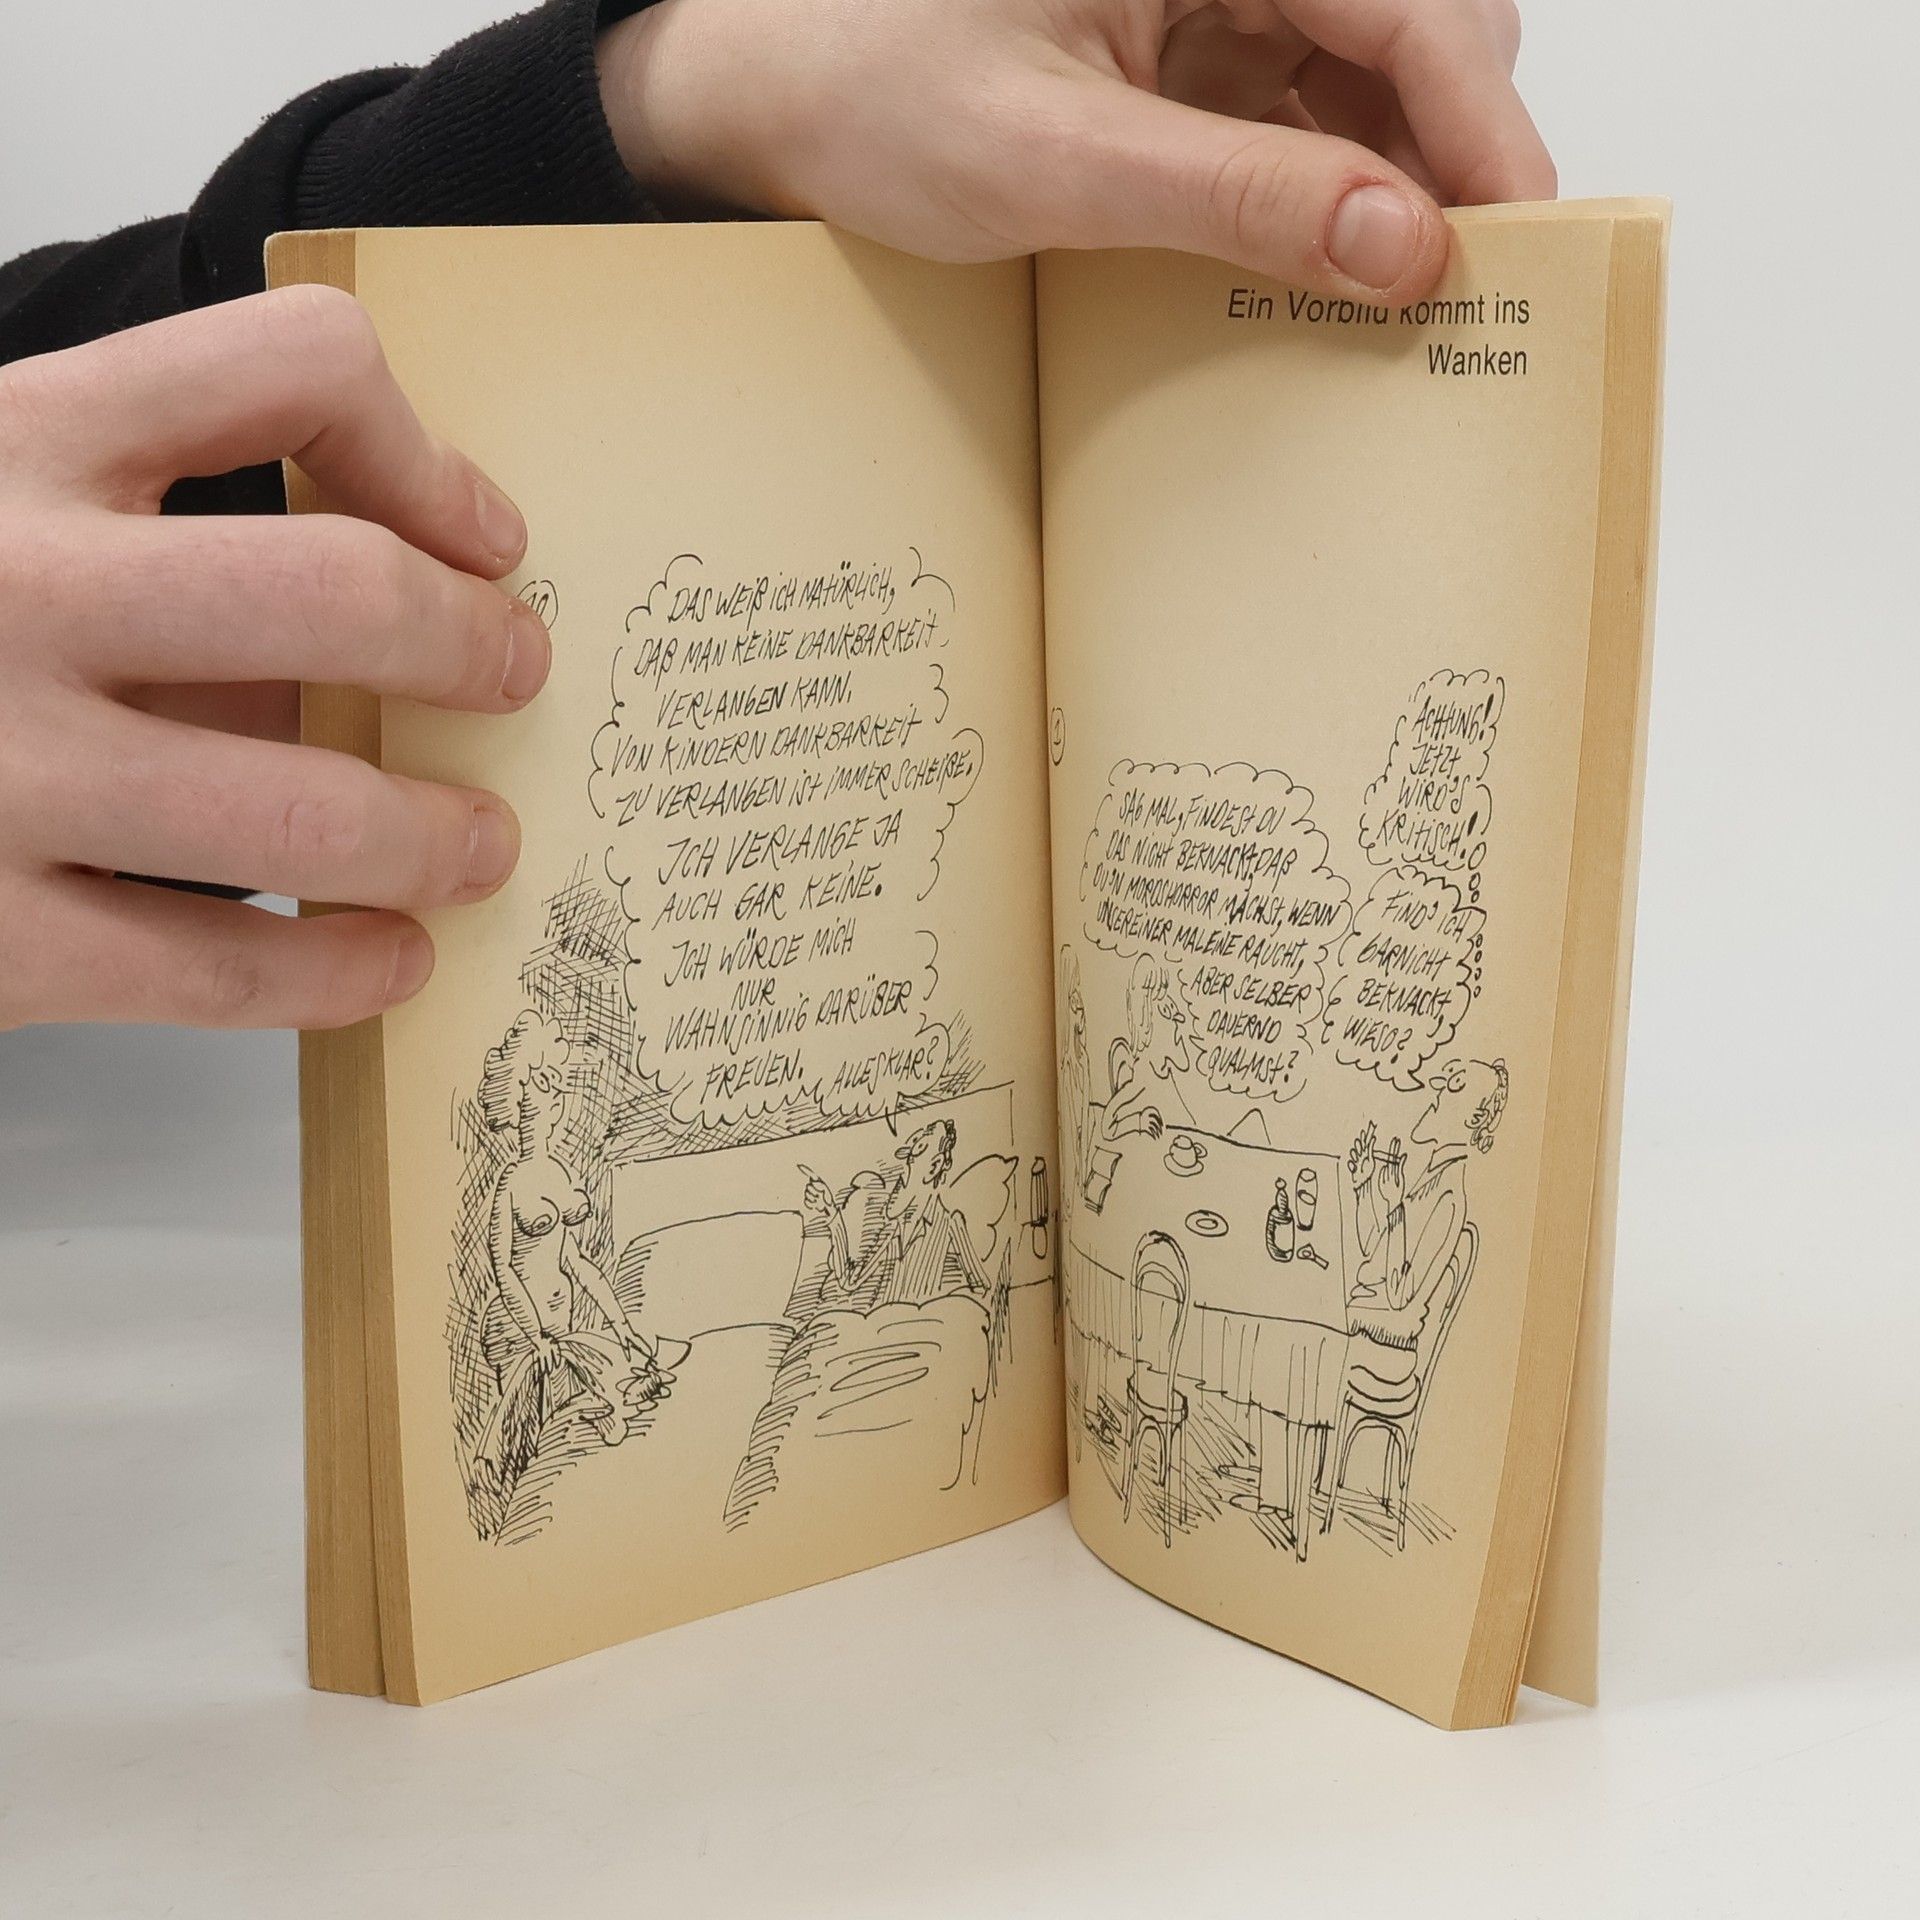 10
DAS WEIß ICH NATÜRLICH,
DAß MAN KEINE DANKBARKEIT
VERLANGEN KANN.
VON KINDERN DANKBARKEIT
ZU VERLANGEN IST IMMER SCHEIßE.
ICH VERLANGE JA
AUCH GAR KEINE.
ICH WÜRDE MICH
NUR
WAHNSINNIG DARÜBER
FREUEN. ALLES KLAR?
Ein Vorbild kommt ins
Wanken
1
SAG MAL, FINDEST DU
DAS NICHT BEKNACKT, DAß
DU 'N MORDSHORROR MACHST, WENN
UNSEREINER MAL EINE RAUCHT,
ABER SELBER
DAUERND
QUALMST?
FIND' ICH
GARNICHT
BEKNACKT,
WIESO?
ACHTUNG!
JETZT
WIRD'S
KRITISCH!